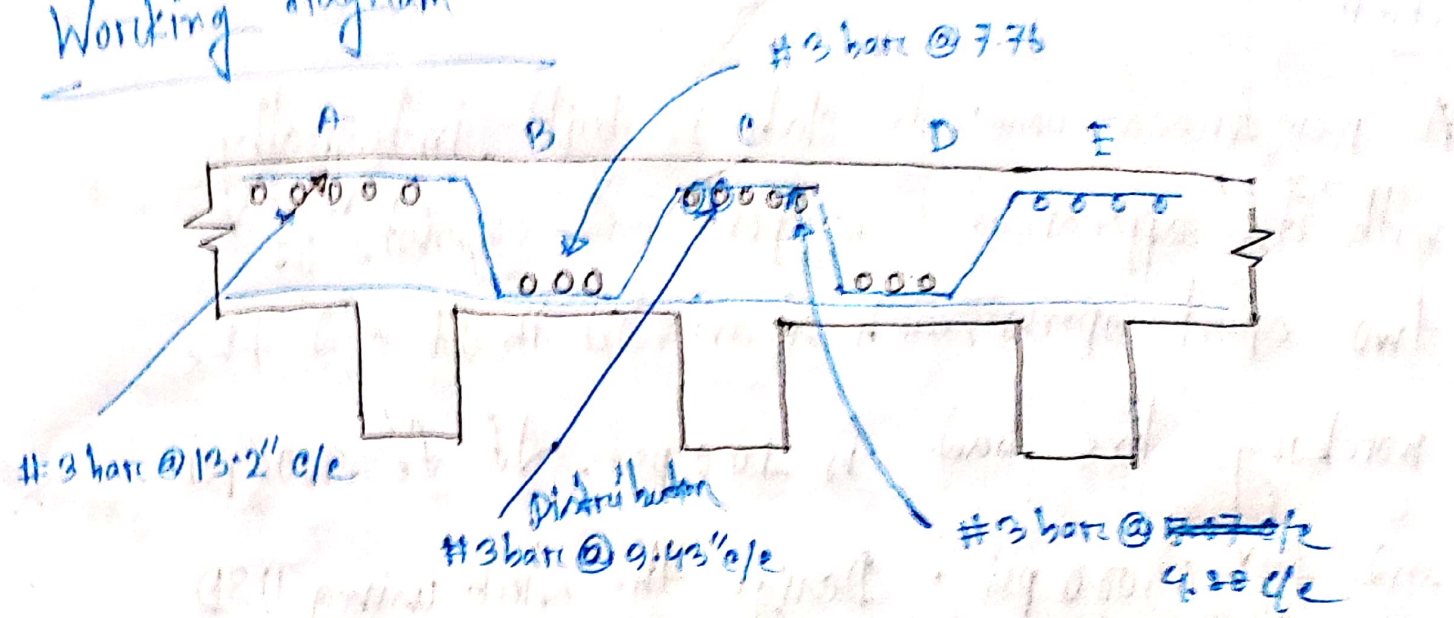 Working diagram
#3 bar @ 7.76
A B C D E
#3 bar @ 13.2" c/c
Distribution
#3 bar @ 9.43" c/c
#3 bar @ c/c
c/c